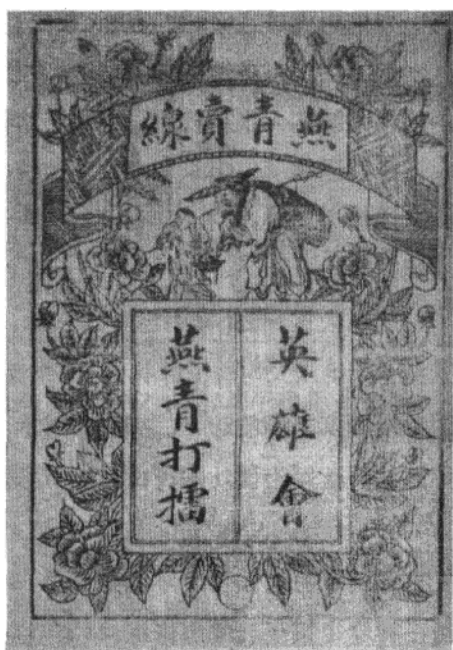 燕青賣線
英雄會
燕青打擂